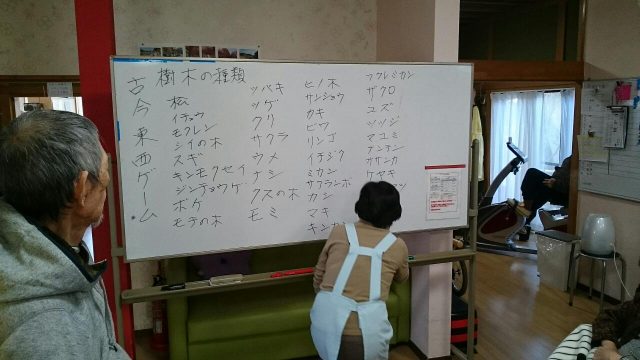 古今東西ゲーム
樹木の種類
松
イチョウ
モクレン
シイの木
スギ
キンモクセイ
ジンチョウゲ
ボケ
モチの木
ツバキ
ツゲ
クリ
サクラ
ウメ
ナシ
クスの木
モミ
ヒノ木
サンショウ
カキ
ビワ
リンゴ
イチジク
ミカン
サクランボ
カシ
マキ
キンカ
ザクロ
ユズ
ツツジ
マユミ
ナンテン
サザンカ
ケヤキ